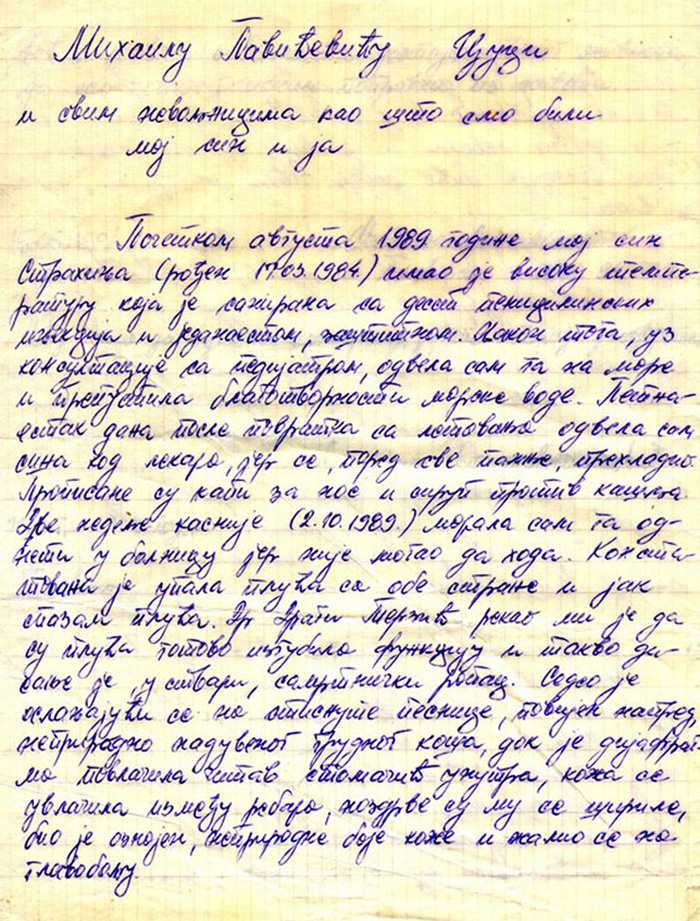 Михаилу Павићевићу Цуци
и свим невољницима као што смо били
мој син и ја
Почетком августа 1989 године мој син
Страхиња (рођен 17.03.1984.) имао је високу темпе-
ратуру која је санирана са десет пеницилинских
инјекција и једанаестом, заштитном. Након тога, уз
консултације са педијатром, одвела сам га на море
и препустила благотворности морске воде. Петна-
естак дана после повратка са летовања одвела сам
сина код лекара, јер се, поред све пажње, прехладио.
Прописане су капи за нос и сируп против кашља.
Две недеље касније (2.10.1989.) морала сам га од-
нети у болницу јер није могао да хода. Конста-
тована је упала плућа са обе стране и јак
спазам плућа. Др Драган Терзић рекао ми је да
су плућа готово изгубила функцију и такво ди-
сање је, у ствари, самртнички ропац. Седео је
ослањајући се на стиснуте песнице, повијен напред,
неприродно надувеног грудног коша, док је дијафраг-
ма повлачила читав стомачић унутра, кожа се
увлачила између ребара, ноздрве су му се шириле,
био је ознојен, неприродне боје коже и жалио се на
главобољу.